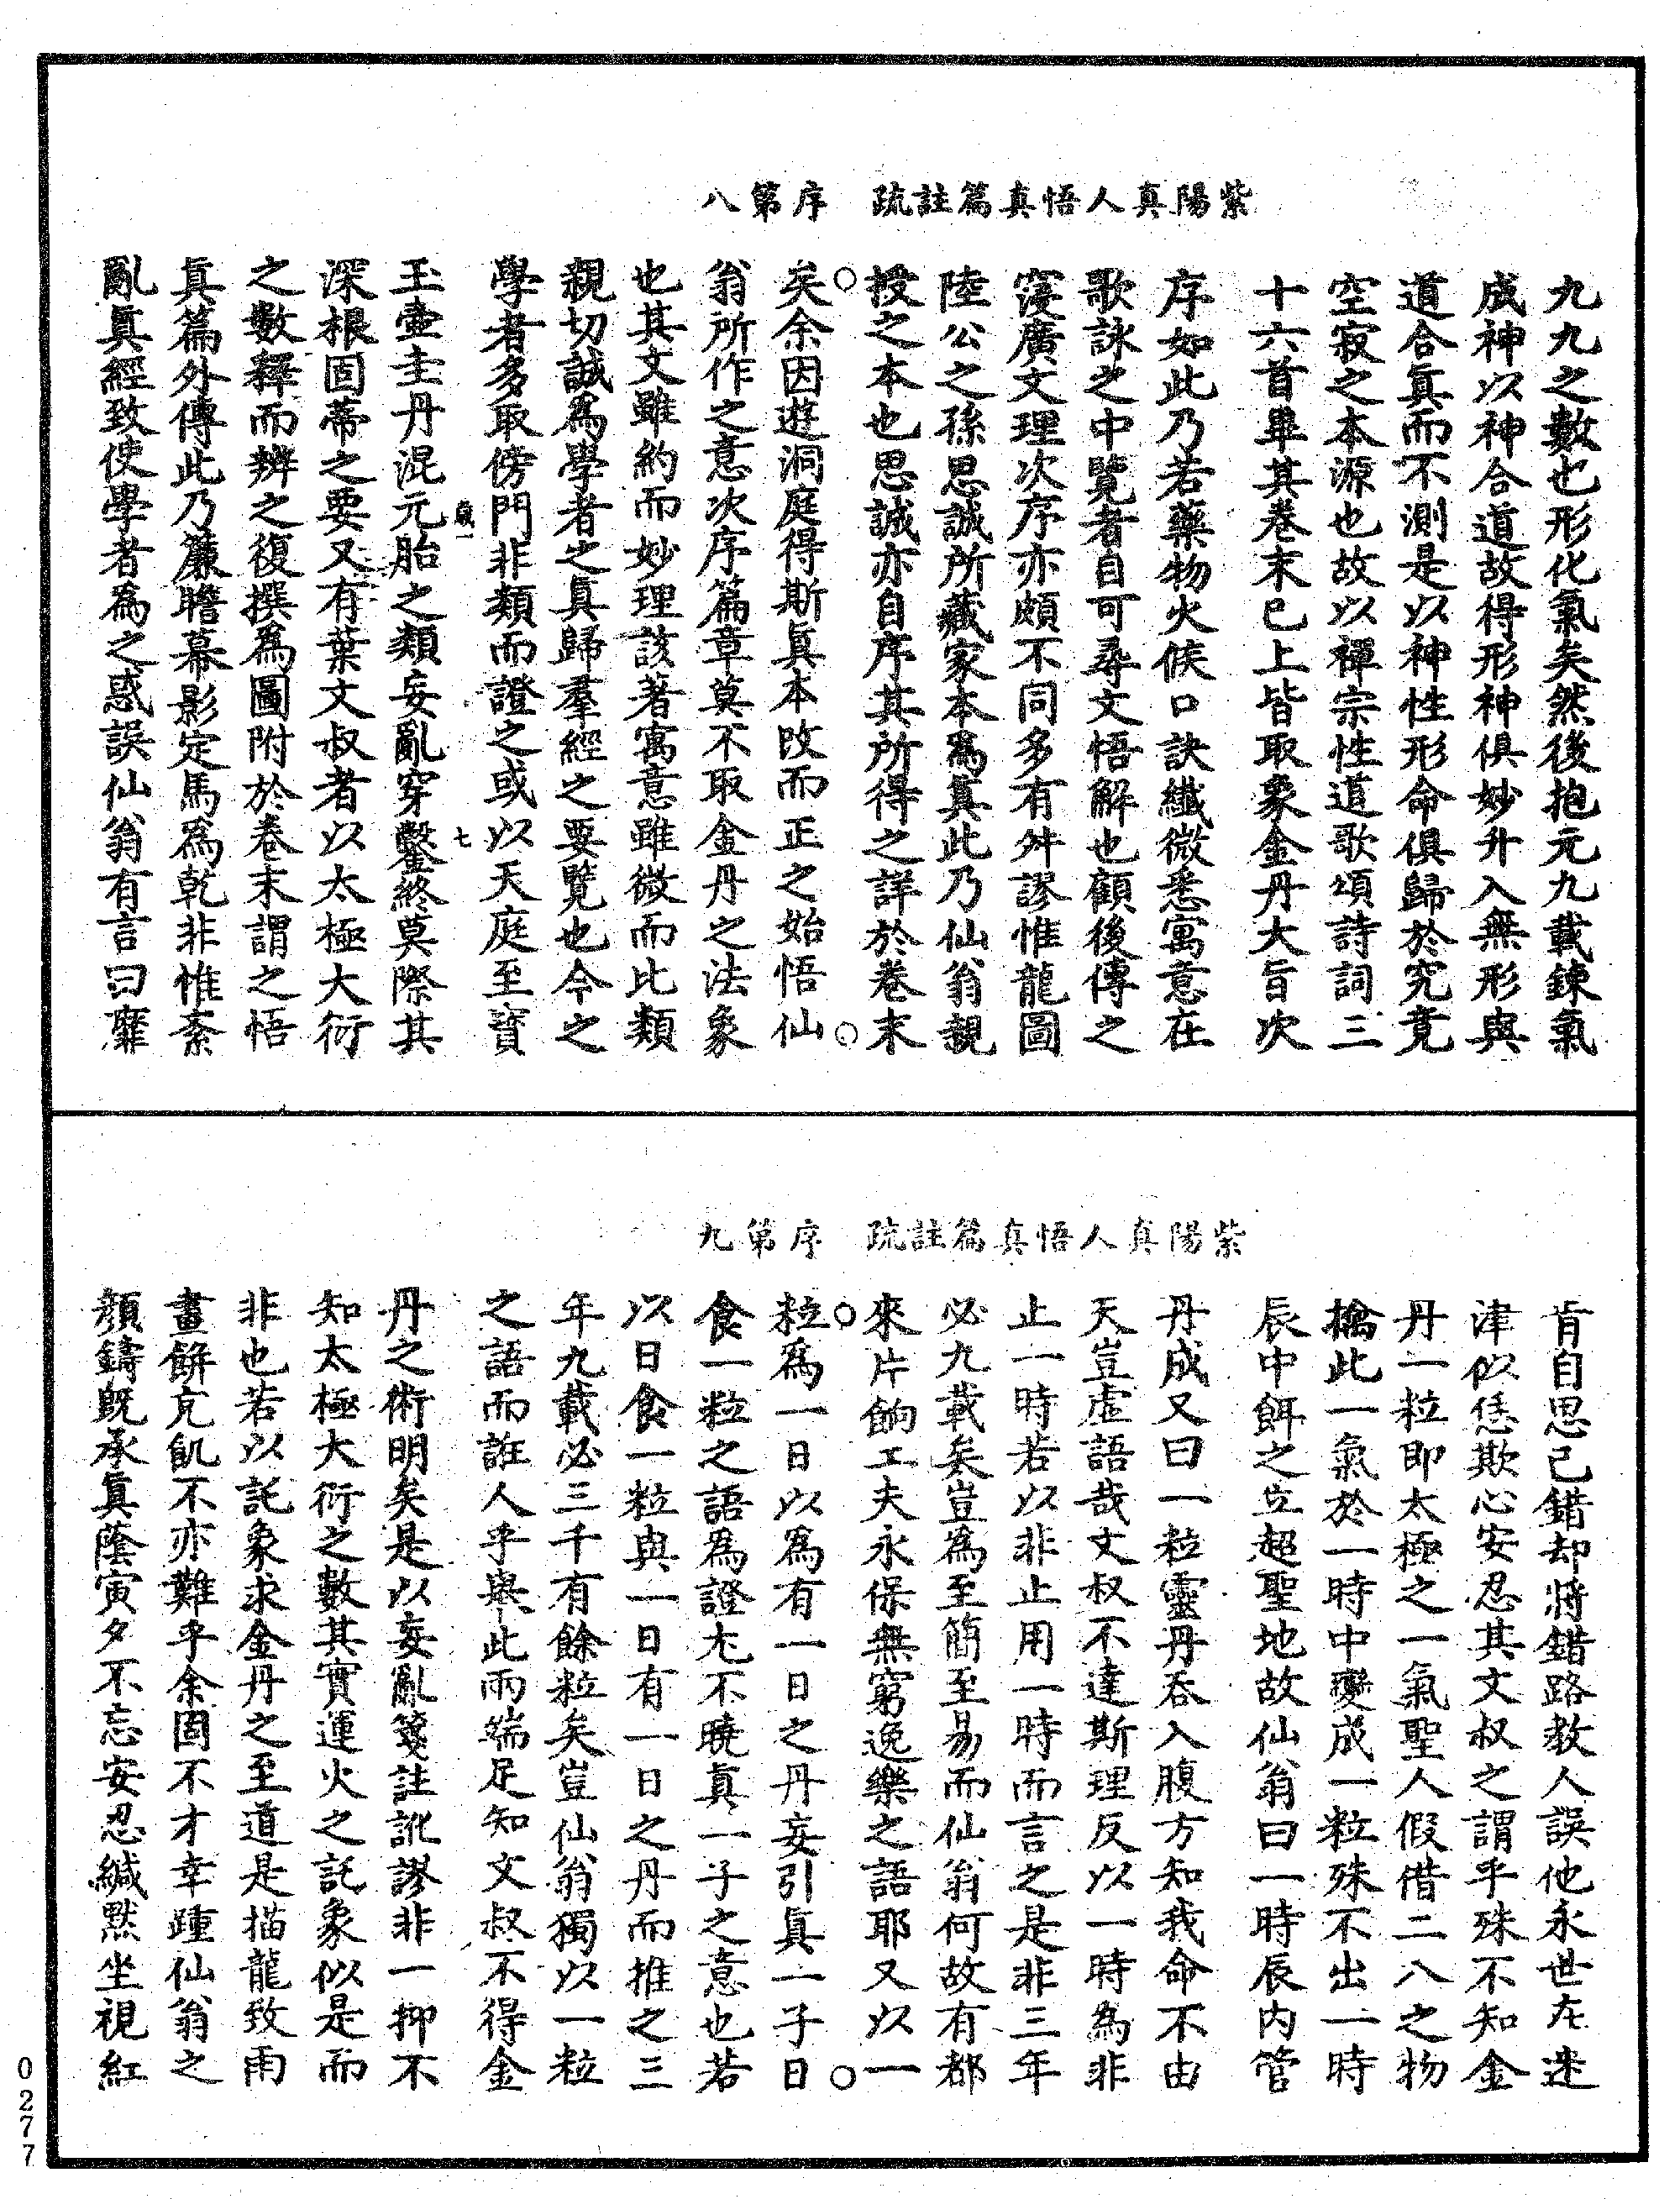 紫陽真人悟真篇註疏　序　第八
九九之數也形化氣矣然後抱元九載鍊氣
成神以神合道故得形神俱妙升入無形與
道合眞而不測是以神性形命俱歸於究竟
空寂之本源也故以禪宗性道歌頌詩詞三
十六首畢其卷末已上皆取象金丹大旨次
序如此乃若藥物火候口訣纖微悉寓意在
歌詠之中覽者自可尋文悟解也顧後傳之
寖廣文理次序亦頗不同多有舛謬惟龍圖
陸公之孫思誠所藏家本爲眞此乃仙翁親
授之本也思誠亦自序其所得之詳於卷末
矣余因遊洞庭得斯眞本改而正之始悟仙
翁所作之意次序篇章莫不取金丹之法象
也其文雖約而妙理該著寓意雖微而比類
親切誠爲學者之眞歸羣經之要覽也今之
學者多取傍門非類而證之或以天庭至寶
歲一　七
玉壷圭丹混元胎之類妄亂穿鑿終莫際其
深根固蔕之要又有葉文叔者以太極大衍
之數釋而辨之復撰爲圖附於卷末謂之悟
眞篇外傳此乃簾瞻幕影定馬爲乾非惟紊
亂眞經致使學者爲之惑誤仙翁有言曰靡
紫陽真人悟真篇註疏　序　第九
肯自思己錯却將錯路教人誤他永世在迷
津似恁欺心安忍其文叔之謂乎殊不知金
丹一粒即太極之一氣聖人假借二八之物
擒此一氣於一時中變成一粒殊不出一時
辰中餌之立超聖地故仙翁曰一時辰内管
丹成又曰一粒靈丹吞入腹方知我命不由
天豈虛語哉文叔不達斯理反以一時為非
止一時若以非止用一時而言之是非三年
必九載矣豈爲至簡至易而仙翁何故有都
來片餉工夫永保無窮逸樂之語耶又以一
粒爲一日以為有一日之丹妄引眞一子日
食一粒之語爲證尤不曉眞一子之意也若
以日食一粒與一日有一日之丹而推之三
年九載必三千有餘粒矣豈仙翁獨以一粒
之語而誑人乎舉此兩端足知文叔不得金
丹之術明矣是以妄亂箋註訛謬非一抑不
知太極大衍之數其實運火之託象似是而
非也若以託象求金丹之至道是描龍致雨
畫餅充飢不亦難乎余固不才幸踵仙翁之
顏鑄旣承眞蔭寅夕不忘安忍緘默坐視紅
0277